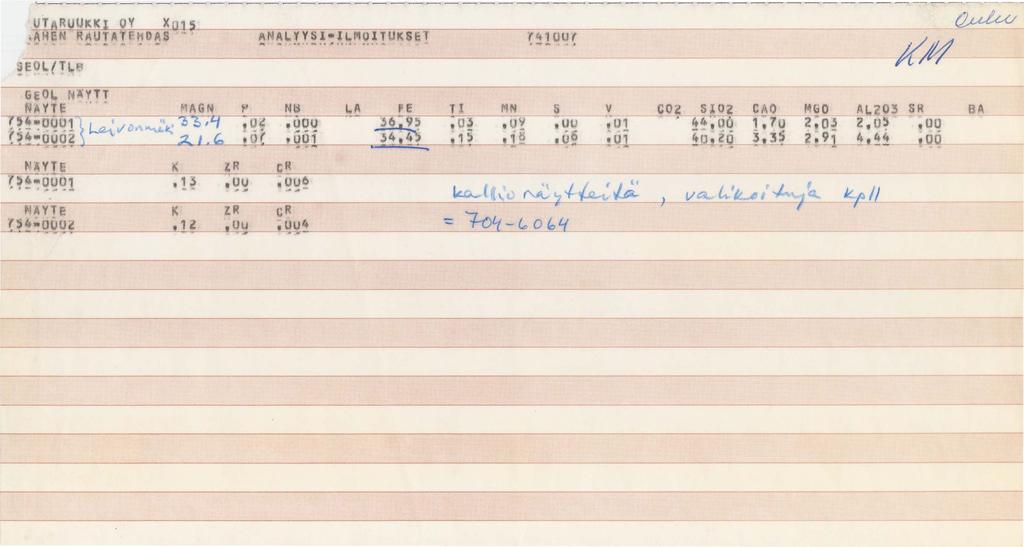 UTARUUKKI OY X015 Oulu
AHEN RAUTATEHDAS ANALYYSI-ILMOITUKSET 741007 KM
GEOL/TLB
GEOL NÄYTT
NÄYTE MAGN P NB LA FE TI MN S V CO2 SIO2 CAO MGO AL2O3 SR BA
754-0001 } Leivonmäki 33.4 .02 .000 36.95 .03 .09 .00 .01 44.00 1.70 2.03 2.05 .00
754-0002 21.6 .07 .001 34.45 .15 .18 .06 .01 40.20 3.35 2.91 4.44 .00
NÄYTE K ZR CR
754-0001 .13 .00 .006
kallionäytteitä, valikoituja kpll
NÄYTE K ZR CR
754-0002 .12 .00 .004
= 704-6064